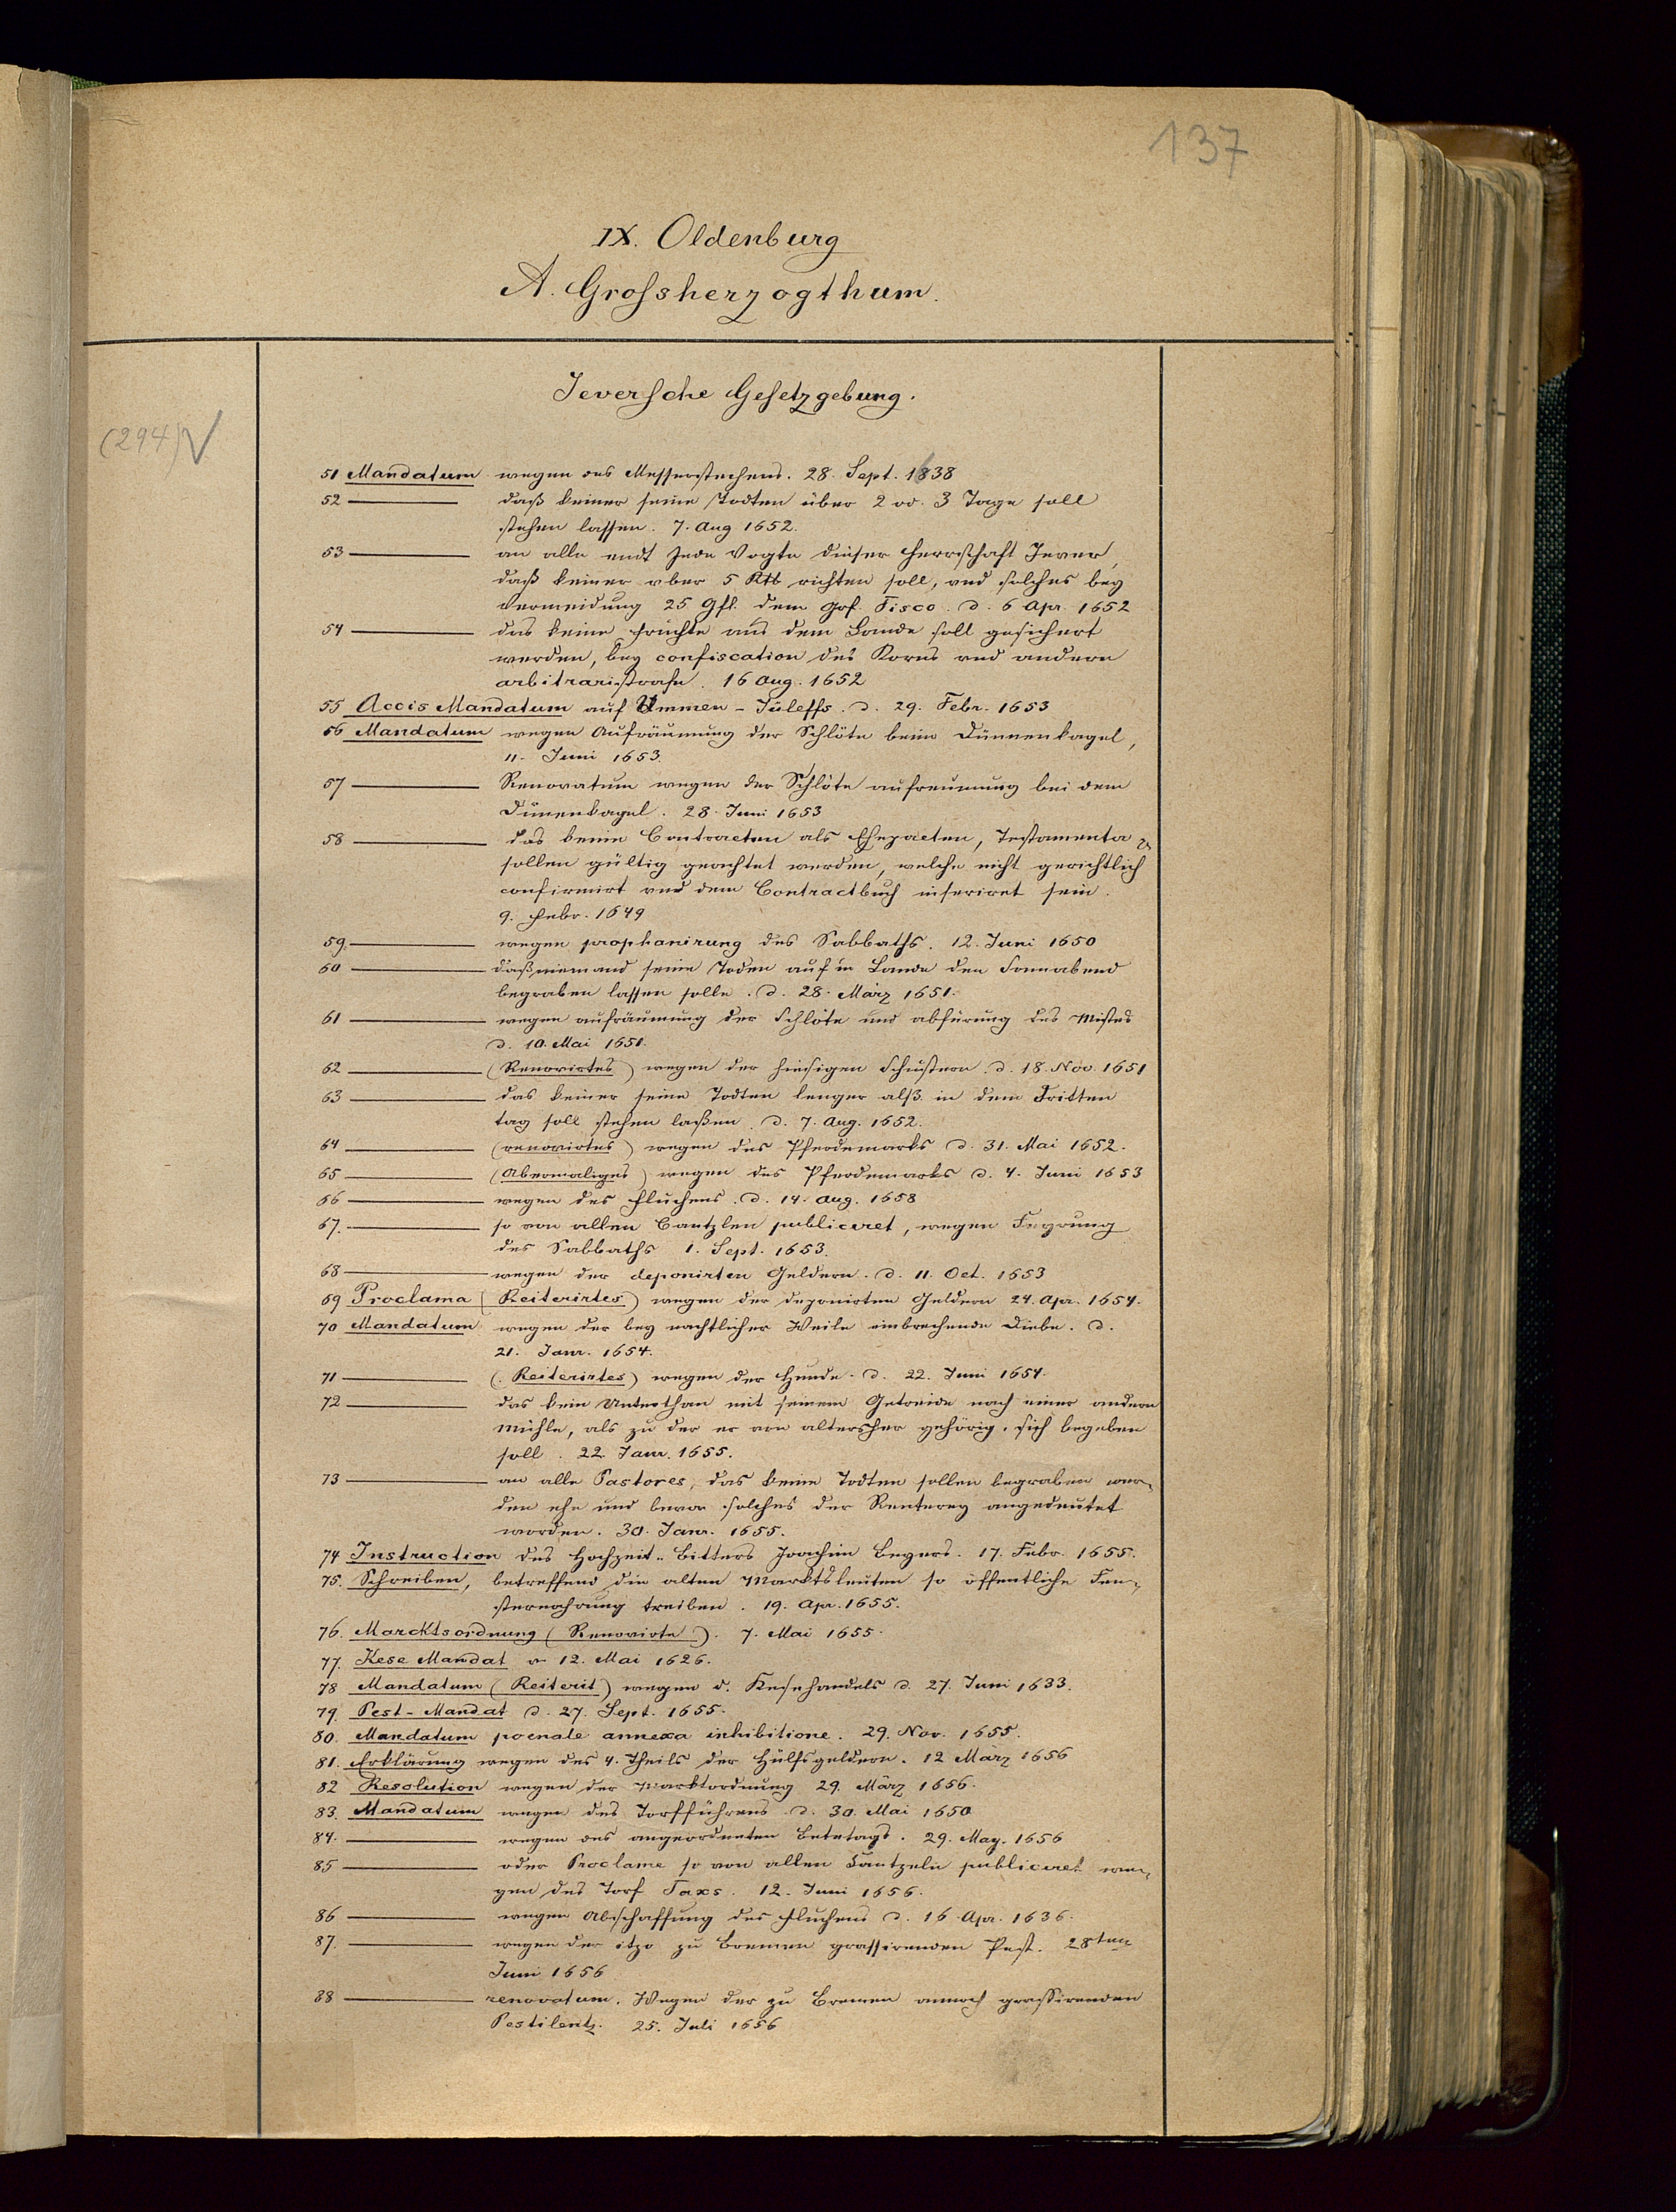 137
IX. Oldenburg
A. Grossherzogthum.
Jeversche Gesetzgebung.
(294)
51 Mandatum wegen des Messerstechens. 28. Sept. 1638
52 ——— daß keiner seine Todten über 2 od. 3 Tage soll
stehen lassen. 7. Aug 1652.
53 ——— an alle undt Jede Vogte dieser Herrschaft Jever,
daß keiner vber 5 Rth richten soll, und solches bey
Vermeidung 25 Gfl. dem Grf. Fisco. d. 6 Apr. 1652
54 ——— das keine früchte aus dem Lande soll gesichert
werden, bey confiscation des Korns und andern
arbitraristrafe. 16 Aug. 1652
55 Accis Mandatum auf d. 29. Febr. 1653
56 Mandatum wegen Aufräumung der Schlöte beim Dünnenkagel,
11. Juni 1653.
57 ——— Renovatum wegen der Schlöte aufreumung bei dem
Dünenkagel. 28. Juni 1653
58 ——— das keine Contracten als Ehepacten, Testamenta
sollen gültig geachtet werden, welche nicht gerichtlich
confirmirt und dem Contractbuch inseriret sein.
9. Febr. 1649
59. ——— wegen prophanirung des Sabbaths. 12. Juni 1650
60 ——— daß niemand seine Toden auf'm Lande den Sonnabend
begraben lassen solle. d. 28. März 1651.
61 ——— wegen aufräumung der Schlöte und abfürung des Mistes
d. 10. Mai 1651.
62 ——— (Renovirtes) wegen der hiesigen Schustern. d. 18. Nov. 1651
63 ——— das keiner seine Todten lenger alß in dem Dritten
tag soll stehen laßen. d. 7. Aug. 1652.
64 ——— (renovirtes) wegen des Pferdemarks d. 31. Mai 1652.
65 ——— (Abermaliges) wegen des Pferdemarks d. 4. Juni 1653
66 ——— wegen des Fluchens. d. 14. Aug. 1658
67. ——— so von allen Cantzlen publiceret, wegen Feyrung
des Sabbaths 1. Sept. 1653.
68 ——— wegen der deponirten Geldern. d. 11. Oct. 1653
69 Proclama (Reiterirtes) wegen der deponirten Geldern 24. Apr. 1654.
70 Mandatum wegen der bey nachtlicher Weile einbrechende Diebe. d.
21. Janr. 1654.
71 ——— (Reiterirtes) wegen der Hunde. d. 22. Juni 1654.
72 ——— das kein Unterthan mit seinem Getreide nach einer andern
Mühle, als zu der er von altersher gehörig, sich begeben
soll. 22 Janr. 1655.
73 ——— an alle Pastores, das keine Todten sollen begraben wer-
den ehe und bevor solches der Renterey angedeutet
worden. 30. Janr. 1655.
74 Instruction des Hochzeit-Bitters Joachim Begers. 17. Febr. 1655.
75. Schreiben, betreffend die alten Marktsleuten so öffentliche Fen-
sternahrung treiben. 19. Apr. 1655.
76. Marcktsordnung (Renovirte). 7. Mai 1655.
77. Kese Mandat v. 12. Mai 1626.
78 Mandatum (Reiterit) wegen d. Kesehandels d. 27. Juni 1633.
79. Pest-Mandat d. 27. Sept. 1655.
80. Mandatum poenale annexa inhibitione. 29. Nov. 1655.
81. Erklärung wegen des 4. Theils der Hülfsgeldern. 12 März 1656
82 Resolution wegen der Marktordnung 29. März 1656.
83. Mandatum wegen des Torfführens d. 30. Mai 1650
84. ——— wegen des angeordneten Betetags. 29. May. 1656
85 ——— oder Proclame so von allen Cantzeln publiceret we-
gen des Torf Taxs. 12. Juni 1656.
86 ——— wegen Abschaffung des Fluchens d. 16. Apr. 1636.
87. ——— wegen der itzo zu Bremen grassirenden Pest. 28ten
Juni 1656
88 ——— renovatum. Wegen der zu Bremen annoch grassirenden
Pestilentz. 25. Juli 1656